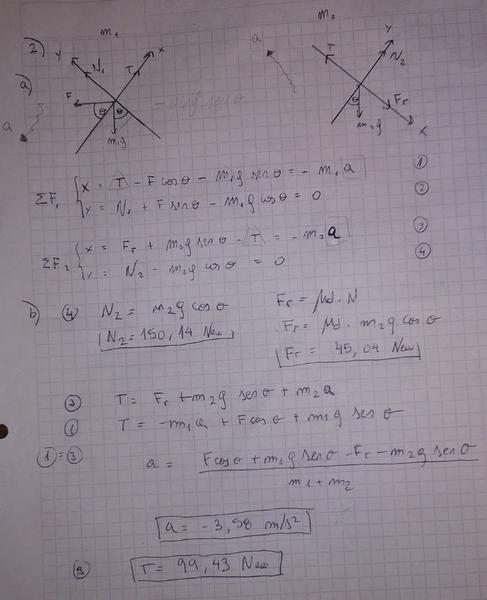 m₁
m₂
2)
Y
N₁
T
X
F
θ
θ
m₁g
a
- m₁g senθ
a)
a
T
Y
N₂
Fr
θ
m₂g
X
ΣF₁ { x = T - F cosθ - m₁g senθ = - m₁ a ①
y = N₁ + F senθ - m₁g cosθ = 0 ②
ΣF₂ { x = Fr + m₂g senθ - T = - m₂a ③
y = N₂ - m₂g cosθ = 0 ④
b) ④ N₂ = m₂g cosθ Fr = μd . N
N₂ = 150,14 New Fr = μd . m₂g cosθ
Fr = 45,04 New
③ T = Fr + m₂g senθ + m₂a
① T = -m₁a + F cosθ + m₁g senθ
①=③ a = Fcosθ + m₁g senθ - Fr - m₂g senθ
m1 + m2
a = -3,58 m/s²
③ T = 99,43 New